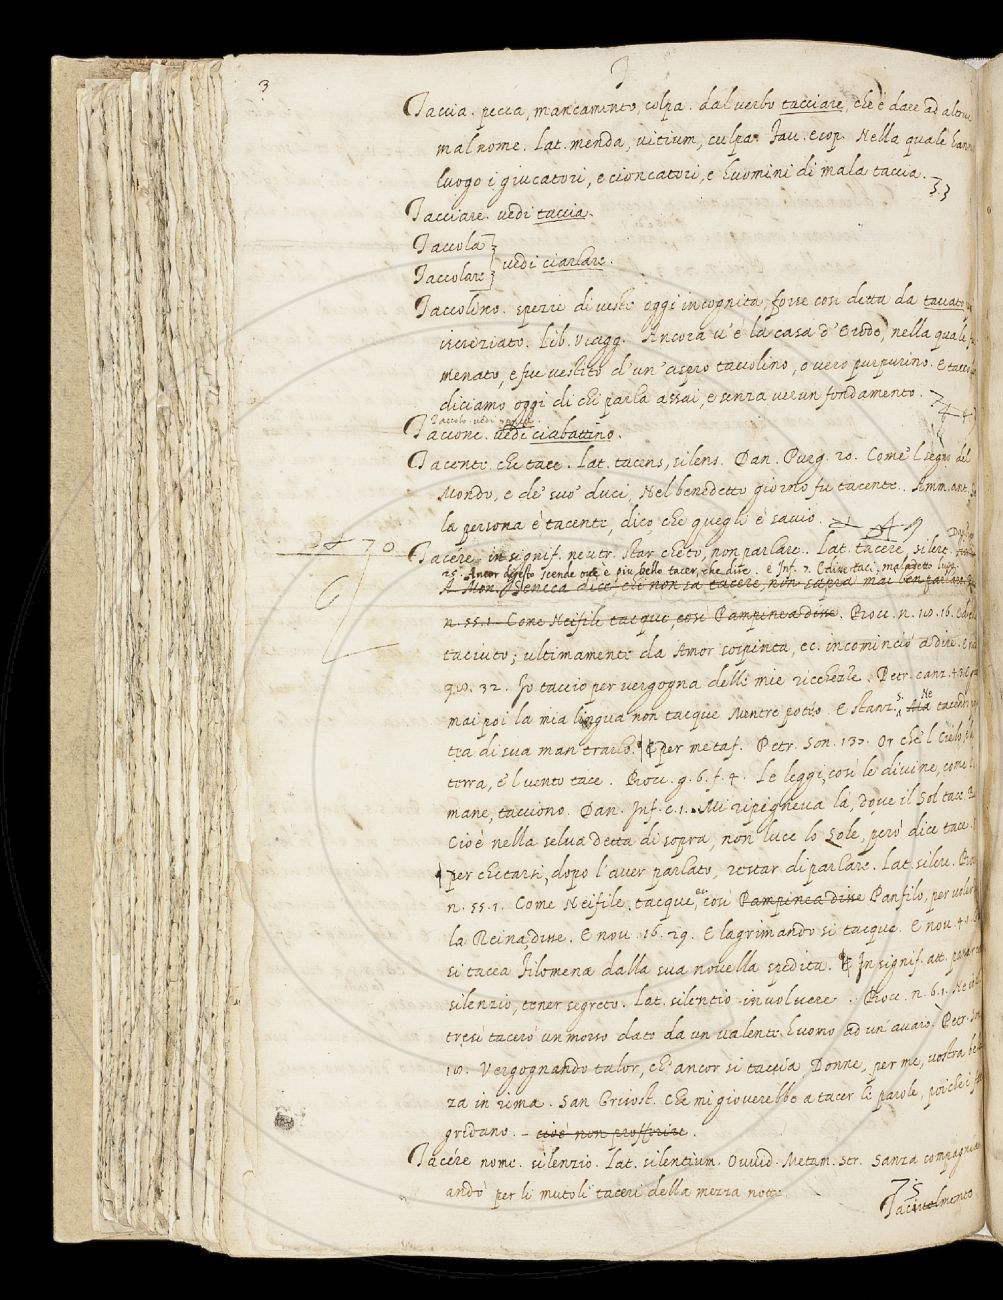 3
T
Taccia. pecca, mancamento, colpa. dal verbo tacciare, che è dare ad altrui
mal nome. Lat. menda, vitium, culpa. Fav. esop. Nella quale hanno
luogo i giucatori, e cioncatori, e huomini di mala taccia.
Tacciare. vedi taccia.
Taccola
Taccolare } vedi ciarlare.
Taccolino. spezie di veste oggi incognita, forse così detta da taccato
iscreziato. Lib. Viagg. Ancora v'è la casa d'Erode, nella quale fu
menato, e fue vestito d'un aspro taccolino, o vero purpurino. E
diciamo oggi di chi parla assai, e senza verun fondamento.
Taccolo. vedi
Taccone. vedi ciabattino.
Tacente. che tace. Lat. tacens, silens. Dan. Purg. 20. Come 'l segno del
Mondo, e de' suo' duci, Nel benedetto giorno fu tacente. Amm. ant. Se
la persona è tacente, dico che quegli è savio.
70
Tacére. in signif. neutr. star cheto, non parlare. Lat. tacere, silere.
25. Ancor digesto scende ove è più bello tacer, che dire. e Inf. 7. E disse taci, maledetto lupo.
A Mon. Seneca dice, chi non sa tacere, non saprà mai ben parlare.
n. 55.1. Come Neifile tacque, così Pampinea disse. Bocc. n. 18. 16.
taciuto; ultimamente da Amor sospinta, ec. incominciò a dire. E nov.
98. 32. Io taccio per vergogna delle mie ricchezze. Petr. canz. 4. E
mai poi la mia lingua non tacque Mentre poteo. E stanz. 5. Ma Ne tacendo
tea di sua man trarlo. ¶ E per metaf. Petr. Son. 137. Or che 'l Cielo, e la
terra, e 'l vento tace. Bocc. g. 6. f. 4. Le leggi, così le divine, come l'
mane, tacciono. Dan. Inf. c. 1. Mi ripigneva là, dove il Sol tace.
Cioè nella selva detta di sopra, non luce lo Sole, però dice tace.
¶ per chetarsi, dopo l'aver parlato, restar di parlare. Lat. silere. Bocc
n. 55.1. Come Neifile tacque, ec. così Pampinea disse Panfilo, per voler
la Reina, disse. E nov. 16. 29. E lagrimando si tacque. E nov. 40.
si tacea Filomena dalla sua novella spedita. ¶ In signif. att.
silenzio, tener segreto. Lat. silentio involvere. Bocc. n. 6.1. Ne
tresì tacerò un morso dato da un valente huomo ad un' avaro. Petr. Son.
18. Vergognando talor, ch' ancor si taccia Donne, per me, vostra bellez
za in rima. San Grisost. Che mi gioverebbe a tacer le parole, poiche i
gridano. - cioè non profferire.
Tacére nome. silenzio. Lat. silentium. Ovvid. Metam. Str. Sanza compagnia
andò per li mutoli taceri della mezza notte.
75
Tacitolmente